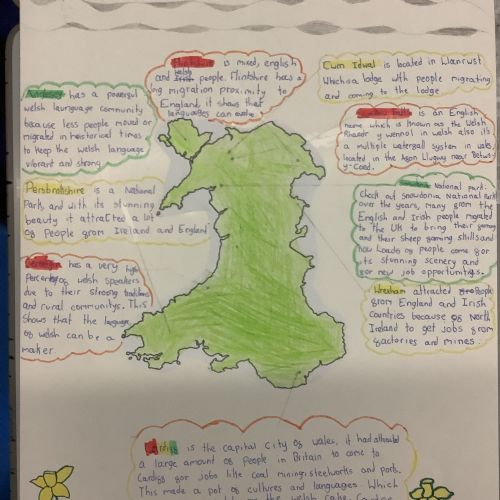 Flintshire is mixed, english
and Irish welsh people. Flintshire has a
ing migration proximity to
England, it shows that
languages can evolve
Cwm Idwal is located in Llanrwst
Which a lodge with people migrating
and coming to the lodge
Anglesey has a powerful
welsh laungage community
because less people moved or
migrated in heistorical times
to keep the welsh language
vibrant and strong.
is an English
name which is known as the Welsh
Rhaedr y wennol in welsh also it's
a multiple waterfall system in wales,
located in the Afon Llugwy near Betws
y-Coed.
Persbrokshire is a National
Park, and with its stunning
beauty it attracted a lot
of People from Ireland and England
National park:
Check out Snowdonia National Park
over the years, many from the
English and Irish people migrated
to the UK to bring their farming
and their sheep farming skills and
how Loads of people come for
its stunning scenery and
for new job opportunitys.
has a very high
Percentage of welsh speakers
due to their strong traditions
and rural communitys. This
shows that the language
of welsh can be a
maker
Wrexham attracted People
from England and Irish
Countries because of North
Ireland to get jobs from
factories and mines.
Cardiff is the capital City of wales, it had attracted
a large amount of People in Britain to come to
Cardiff for jobs like coal mining, steelworks and ports.
This made a pot of cultures and languages. Which
the welsh